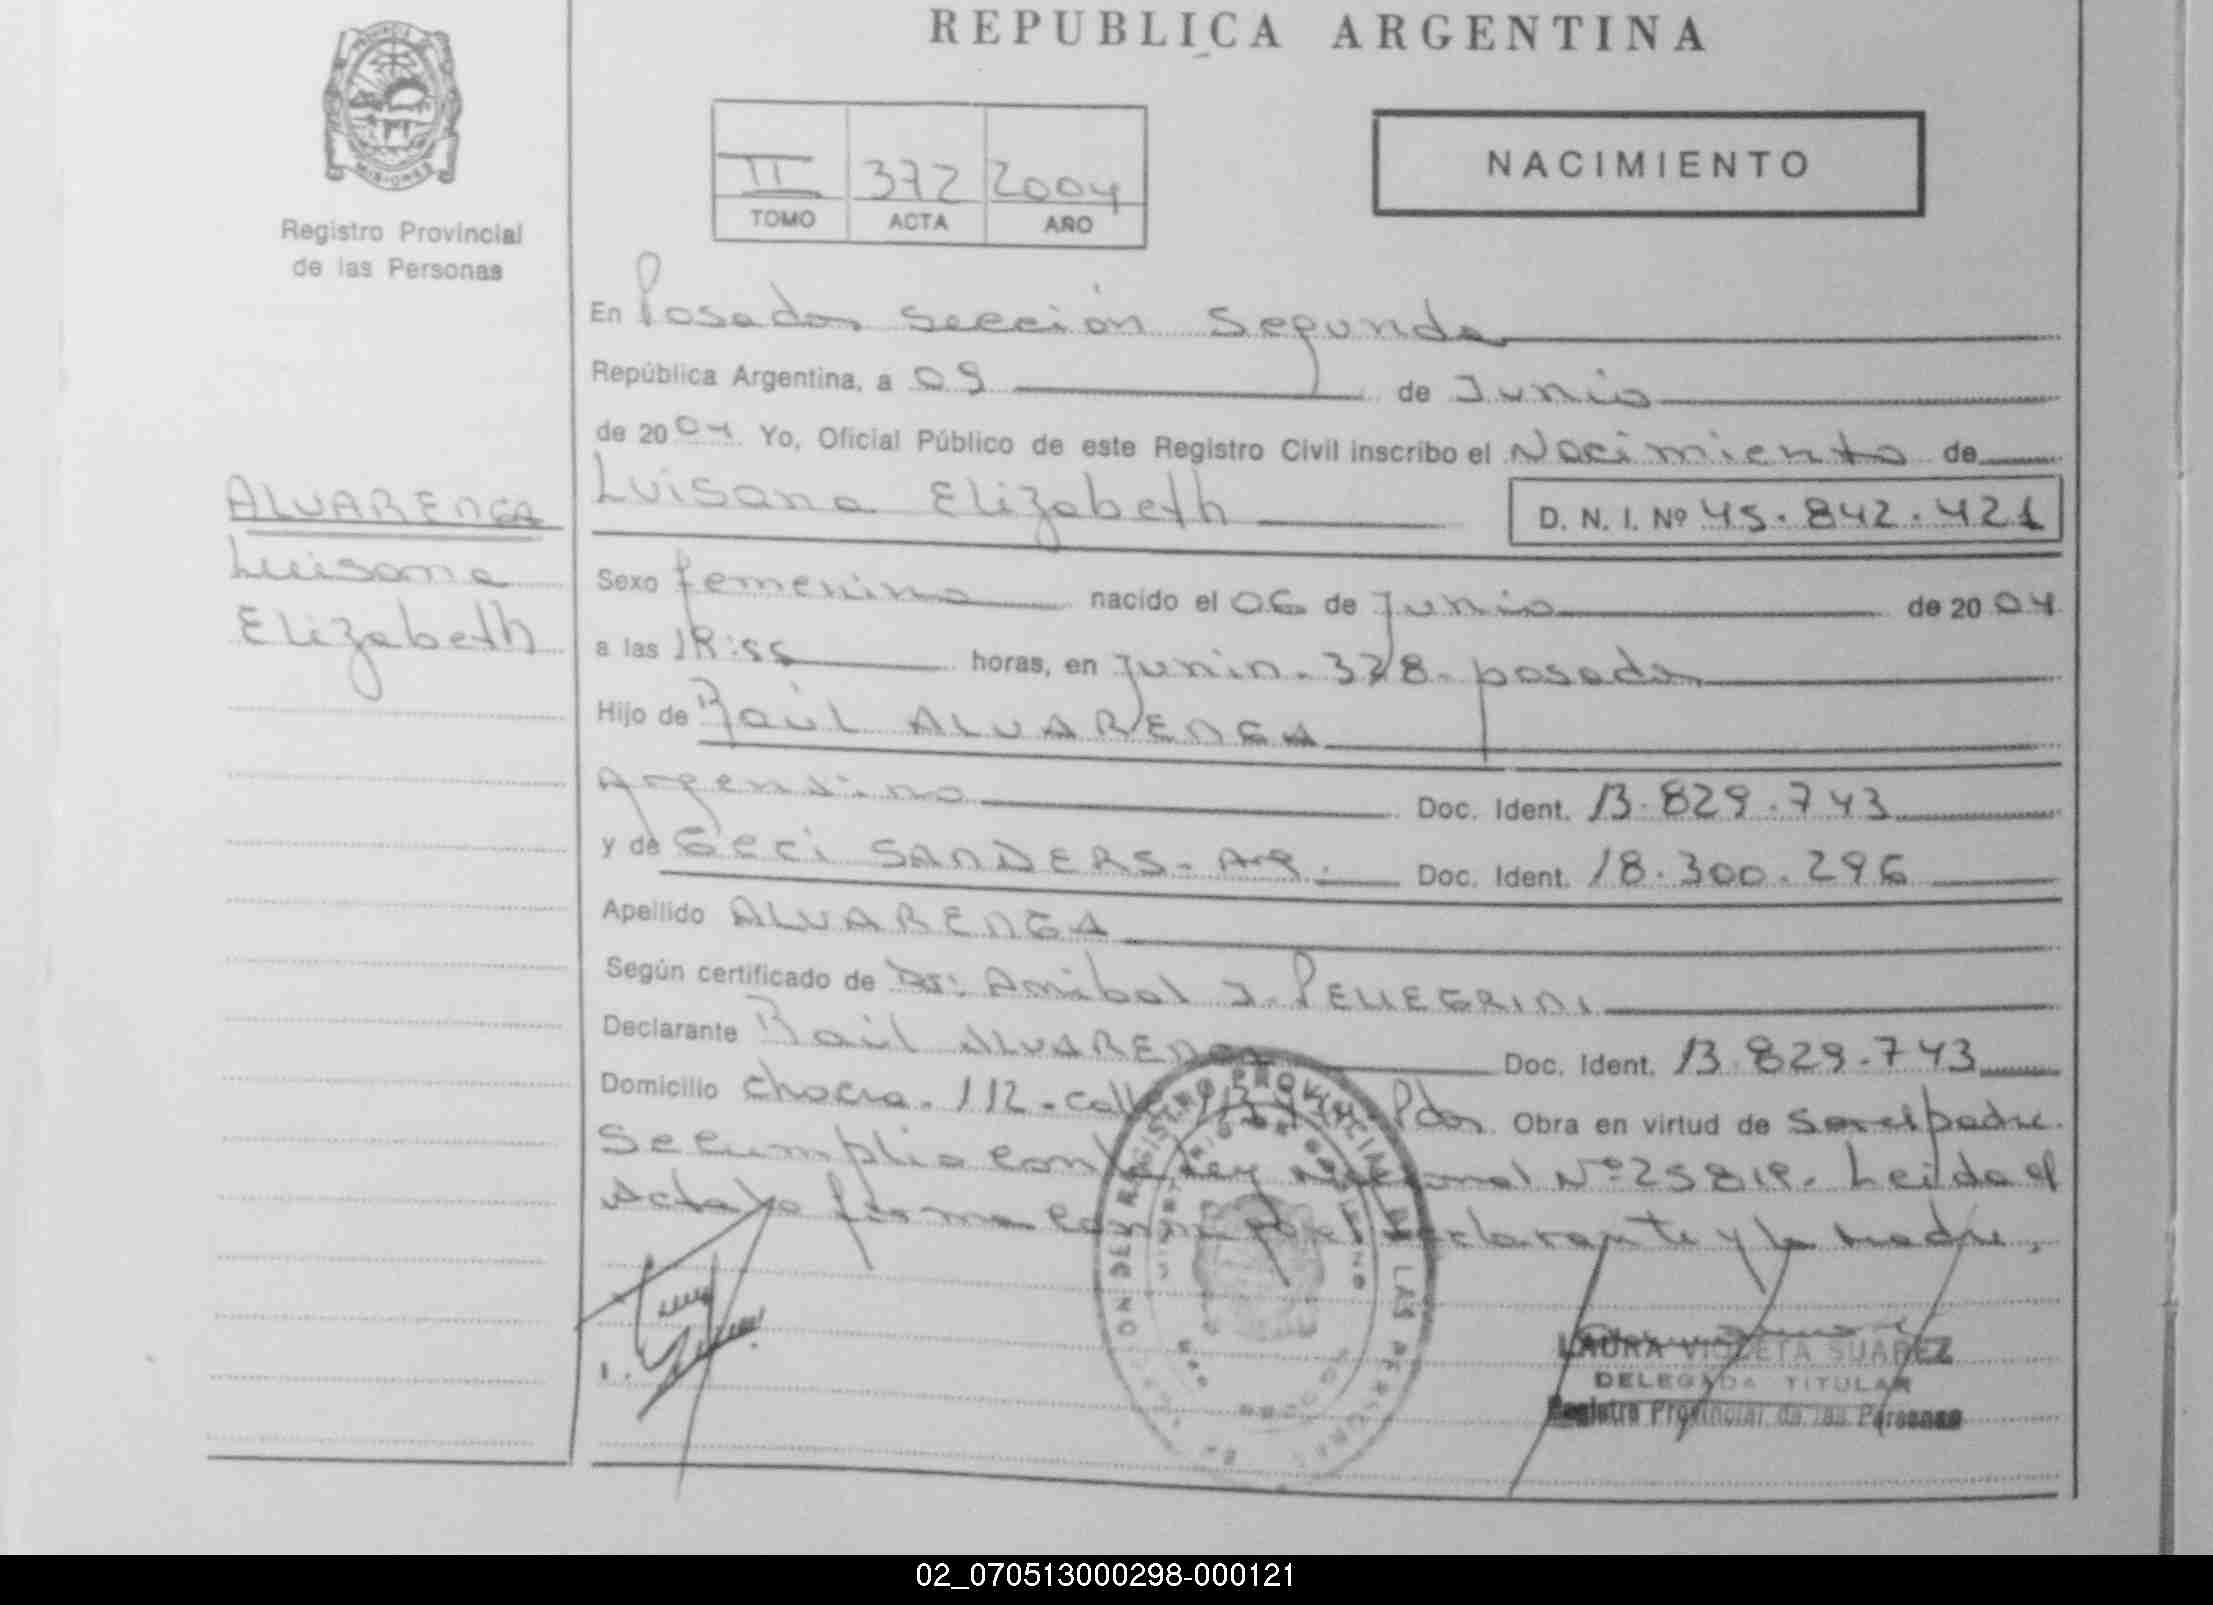 REPUBLICA ARGENTINA
PROVINCIA DE MISIONES
Registro Provincial
de las Personas
II 372 2004
TOMO ACTA AÑO
NACIMIENTO
En Posadas Sección Segunda
República Argentina, a 09 de Junio
de 2004 Yo, Oficial Público de este Registro Civil inscribo el Nacimiento de
Luisana Elizabeth D. N. I. Nº 45.842.421
ALVARENGA
Luisana
Elizabeth
Sexo femenino nacido el 06 de Junio de 2004
a las 18:55 horas, en Junin. 328. posadas
Hijo de Raúl ALVARENGA
Argentino Doc. Ident. 13.829.743
y de Geci SANDERS - Arg. Doc. Ident. 18.300.296
Apellido ALVARENGA
Según certificado de Dr: Anibal J. PELLEGRINI
Declarante Raúl ALVARENGA Doc. Ident. 13.829.743
Domicilio chacra. 112. calle Pdas. Obra en virtud de ser el padre.
Se cumplio con la Ley Nacional Nº 25819. Leida el
Acta la firma conmigo el declarante y la madre.
REGISTRO PROVINCIAL DE LAS PERSONAS
MINISTERIO DE GOBIERNO
LAURA VIOLETA SUAREZ
DELEGADA TITULAR
Registro Provincial de las Personas
02_070513000298-000121